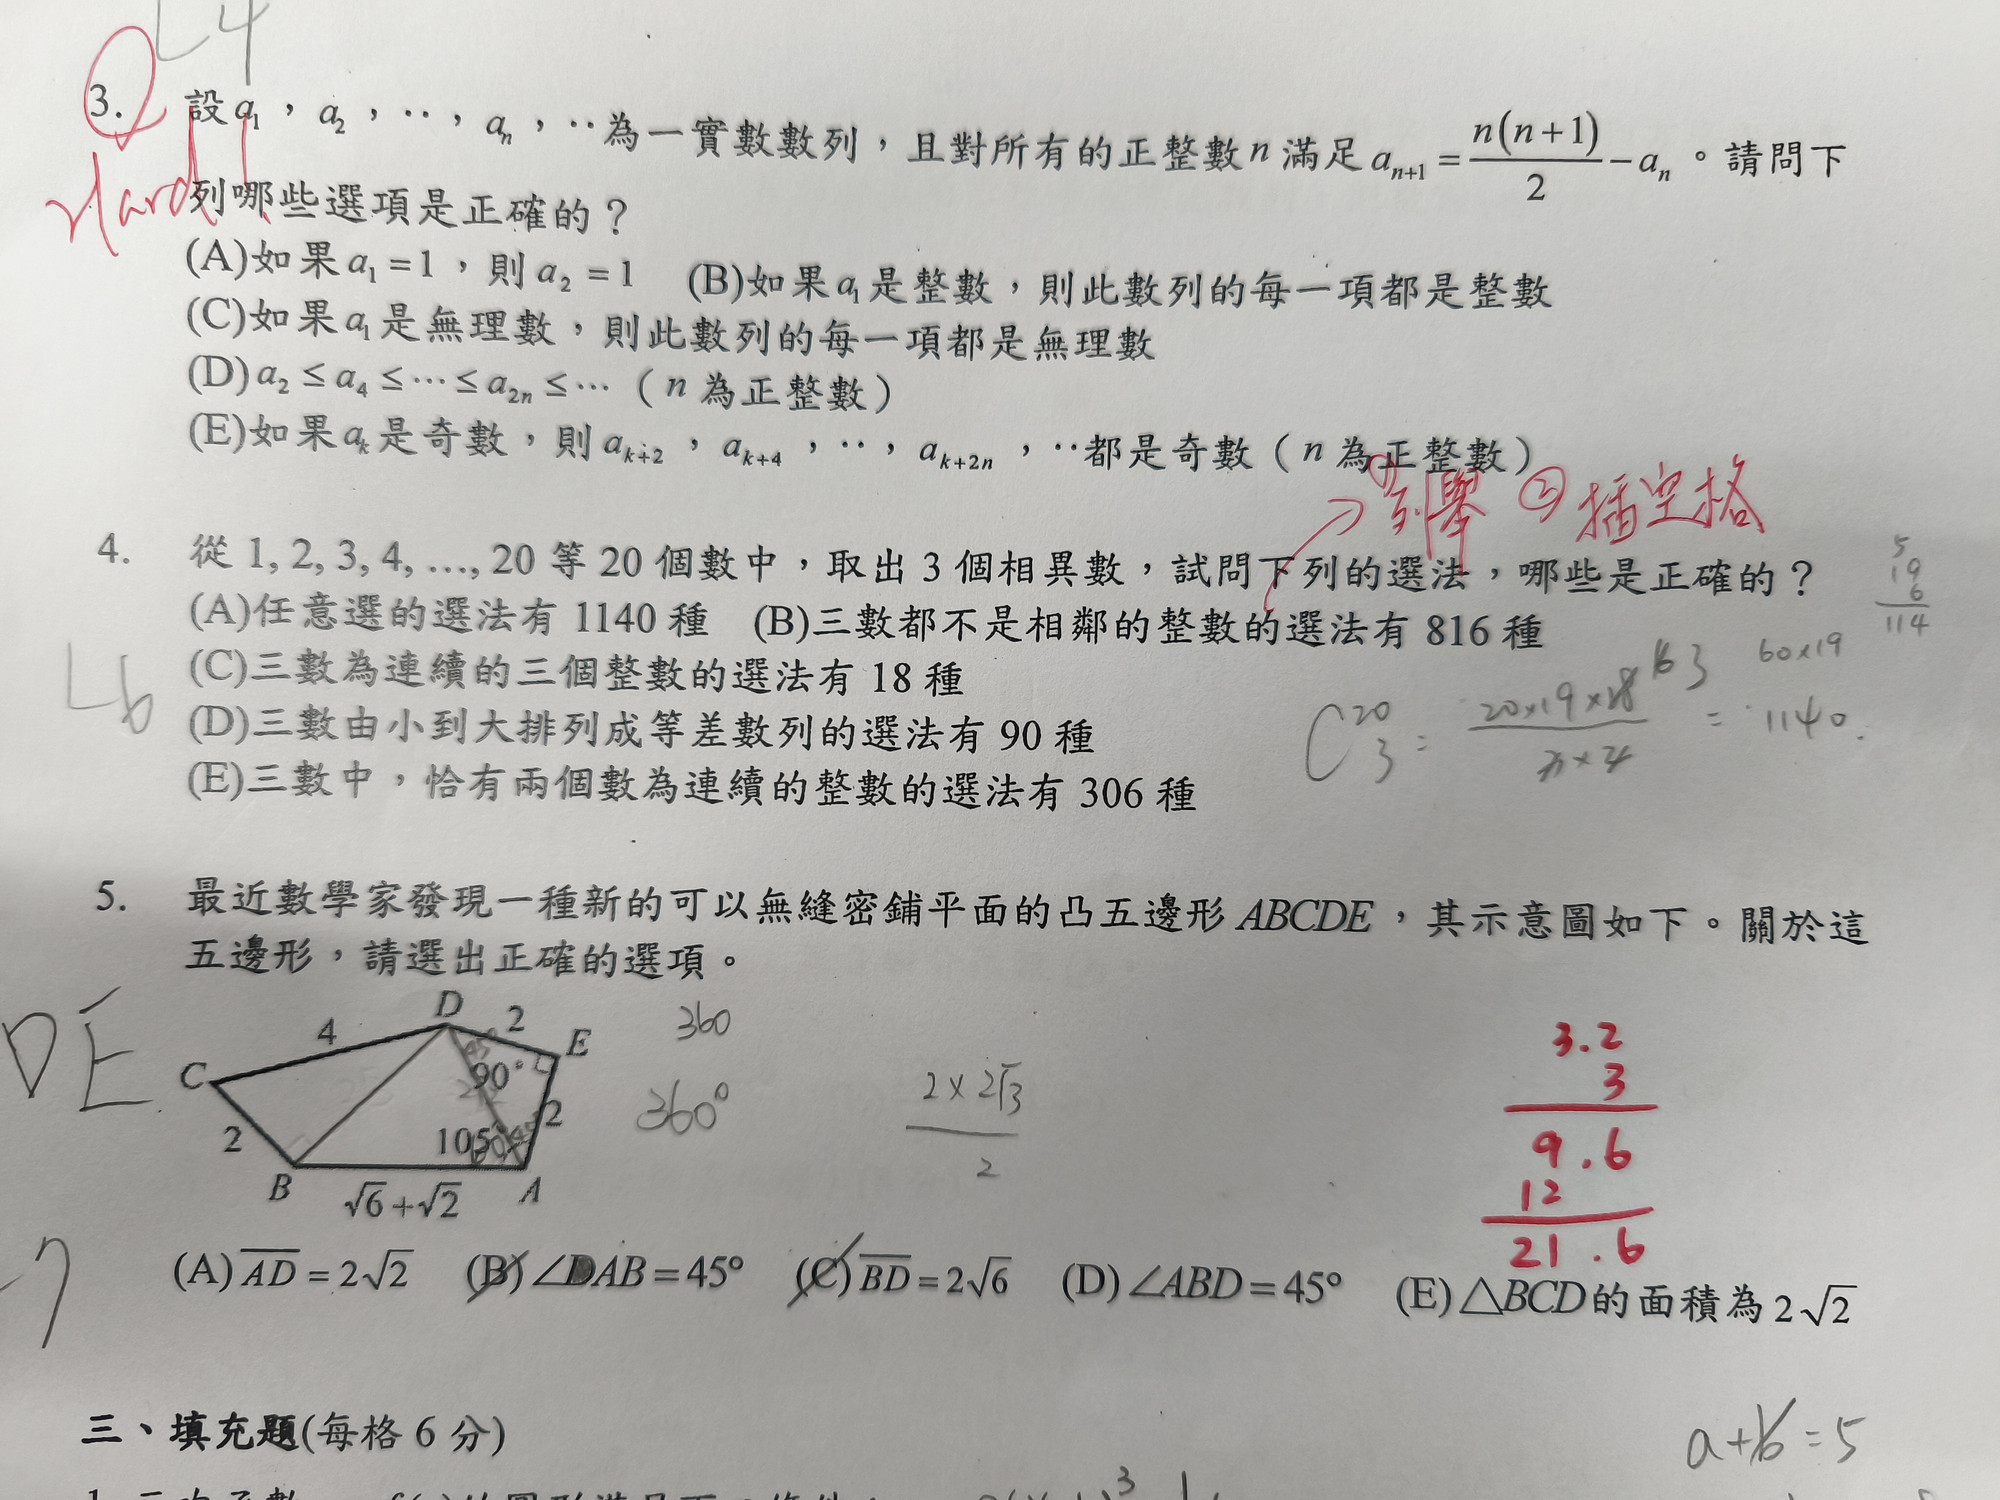 L4
3. 設a₁，a₂，‥，aₙ，‥為一實數數列，且對所有的正整數n滿足aₙ₊₁ = n(n+1)/2 − aₙ。請問下
Hard!
列哪些選項是正確的？
(A)如果a₁=1，則a₂=1 (B)如果a₁是整數，則此數列的每一項都是整數
(C)如果a₁是無理數，則此數列的每一項都是無理數
(D)a₂≤a₄≤⋯≤a₂ₙ≤⋯（n為正整數）
(E)如果aₖ是奇數，則aₖ₊₂，aₖ₊₄，‥，aₖ₊₂ₙ，‥都是奇數（n為正整數）
→①列舉 ②插空格
4. 從1, 2, 3, 4, …, 20等20個數中，取出3個相異數，試問下列的選法，哪些是正確的？
5
19
6
114
(A)任意選的選法有1140種 (B)三數都不是相鄰的整數的選法有816種
L6
(C)三數為連續的三個整數的選法有18種
60×19
(D)三數由小到大排列成等差數列的選法有90種
C²⁰₃ = 20×19×18 = 1140.
(E)三數中，恰有兩個數為連續的整數的選法有306種
5. 最近數學家發現一種新的可以無縫密鋪平面的凸五邊形ABCDE，其示意圖如下。關於這
五邊形，請選出正確的選項。
DE
D
4
2
E
C
90°
2
105°
2
B
√6+√2
A
360
360°
2×2√3
2
3.2
3
9.6
12
21.6
(A)AD=2√2 (B)∠DAB=45° (C)BD=2√6 (D)∠ABD=45° (E)△BCD的面積為2√2
三、填充題(每格6分)
a+b=5